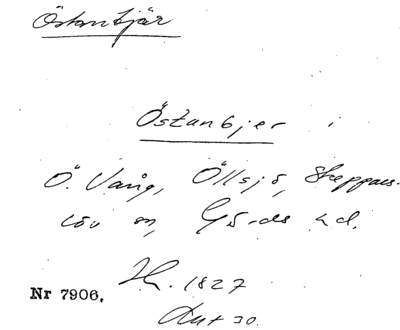 Östanbjär
Östanbjer i
Ö. Vång, Öllsjö, Skeppars-
löv sn, Gärds hd.
1827
Nr 7906.
30.